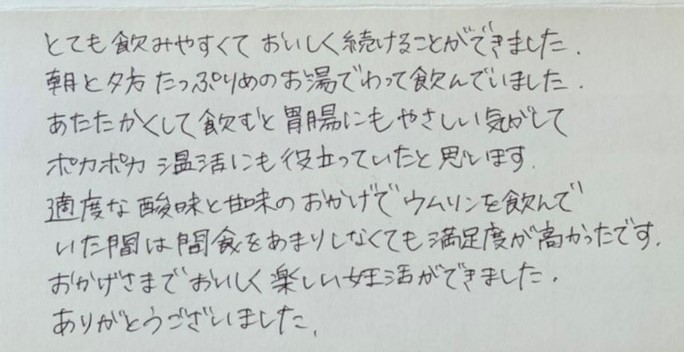 とても飲みやすくて おいしく続けることができました.
朝と夕方 たっぷりめのお湯でわって飲んでいました.
あたたかくして飲むと胃腸にもやさしい気がして
ポカポカ 温活にも役立っていたと思います.
適度な酸味と甘味の おかげで ウムリンを飲んで
いた間は間食をあまりしなくても満足度が高かったです.
おかげさまで おいしく楽しい妊活ができました.
ありがとうございました.